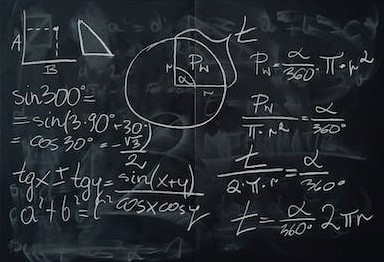 A
B
t
r
α
P_N
r
sin300°=
=sin(3·90°+30°)
= cos30° = -√3/2
tgx ± tgy = sin(x+y)/cosxcosy
a²+b²=c²
P_N = α/360° · π·r²
P_N/π·r² = α/360°
t/2·π·r = α/360°
t = α/360° 2πr